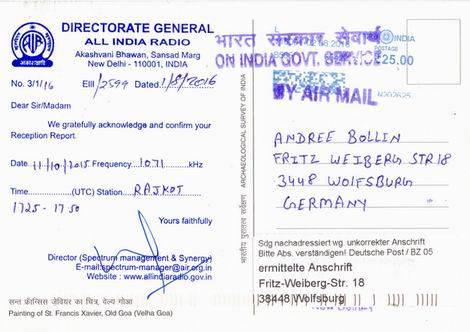 DIRECTORATE GENERAL
ALL INDIA RADIO
Akashvani Bhawan, Sansad Marg
New Delhi - 110001, INDIA
No. 3/1/16 EIII/2599 Dated 1/8/2016
Dear Sir/Madam
We gratefully acknowledge and confirm your
Reception Report.
Date 11/10/2015 Frequency 1071 kHz
Time (UTC) Station: RAJKOT
1725 - 1750
Yours faithfully
Director (Spectrum management & Synergy)
E-mail:spectrum-manager@air.org.in
Website : www.allindiaradio.gov.in
सन्त फ्रान्सिस ज़ेवियर का चित्र, वेल्य गोआ
Painting of St. Francis Xavier, Old Goa (Velha Goa)
भारतीय पुरातत्व सर्वेक्षण ARCHAEOLOGICAL SURVEY OF INDIA
भारत सरकार सेवार्थ
ON INDIA GOVT. SERVICE
BY AIR MAIL
INDIA
POSTAGE
25.00
N202625
ANDREE BOLLIN
FRITZ WEIBERG STR 18
3448 WOLFSBURG
GERMANY
Sdg nachadressiert wg. unkorrekter Anschrift
Bitte Abs. verständigen! Deutsche Post / BZ 05
ermittelte Anschrift
Fritz-Weiberg-Str. 18
38448 Wolfsburg